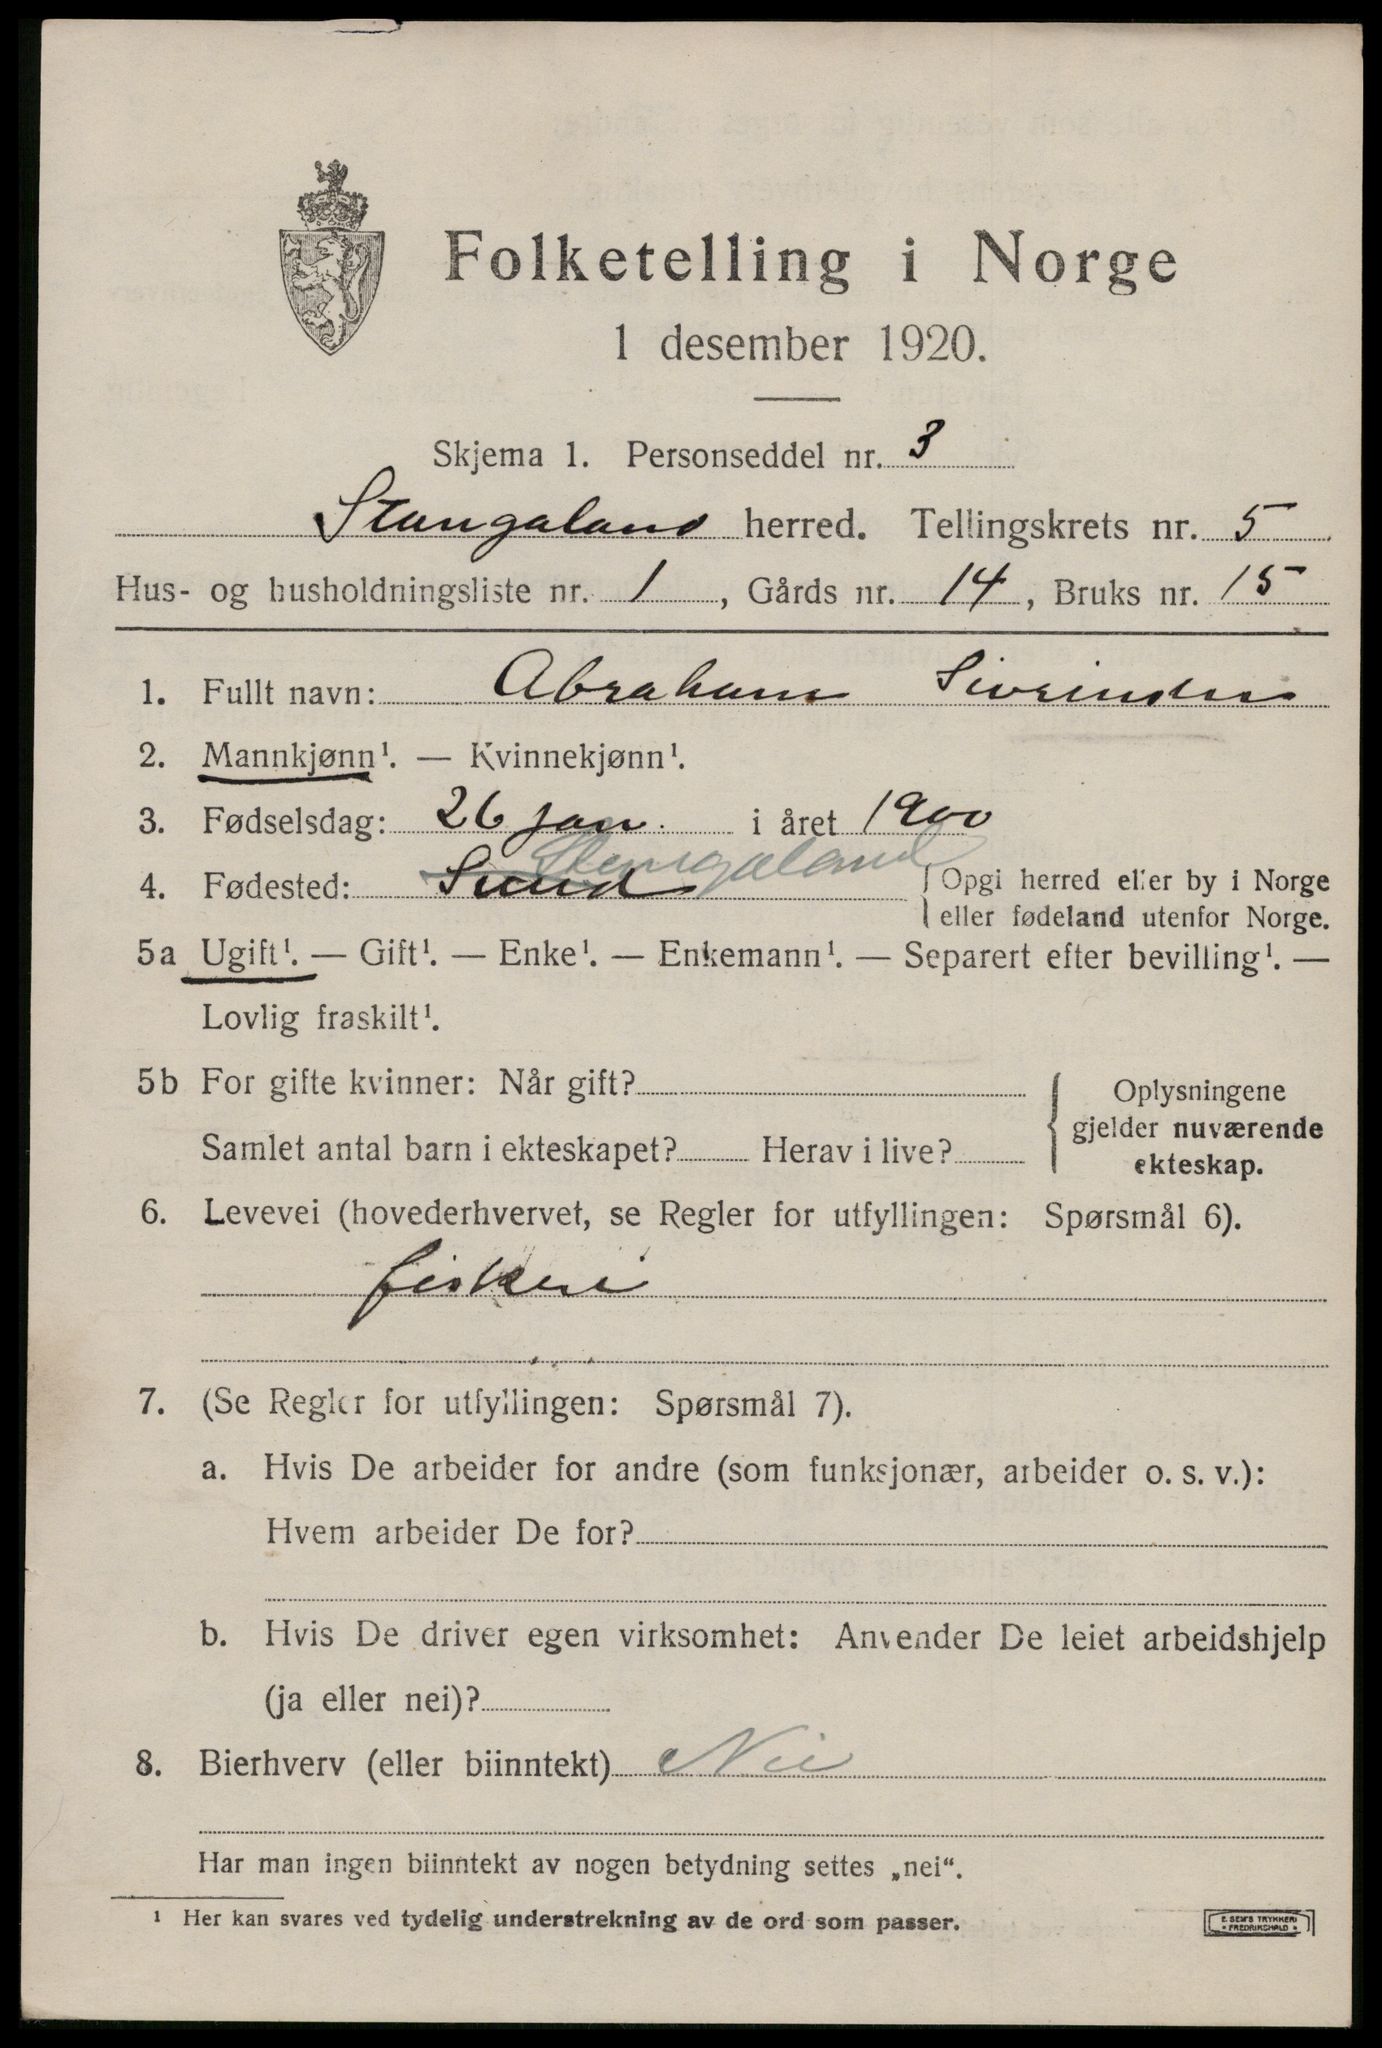 Folketelling i Norge
1 desember 1920.
Skjema 1. Personseddel nr. 3
Stangaland herred. Tellingskrets nr. 5
Hus- og husholdningsliste nr. 1, Gårds nr. 14, Bruks nr. 15
1. Fullt navn: Abraham Sivrindsen
2. Mannkjønn¹. — Kvinnekjønn¹.
3. Fødselsdag: 26 jan. i året 1900
Stangaland
4. Fødested: Sund { Opgi herred eller by i Norge
eller fødeland utenfor Norge.
5a Ugift¹. — Gift¹. — Enke¹. — Enkemann¹. — Separert efter bevilling¹. —
Lovlig fraskilt¹.
5b For gifte kvinner: Når gift?
Samlet antal barn i ekteskapet? Herav i live?
Oplysningene
gjelder nuværende
ekteskap.
6. Levevei (hovederhvervet, se Regler for utfyllingen: Spørsmål 6).
fiskeri
7. (Se Regler for utfyllingen: Spørsmål 7).
a. Hvis De arbeider for andre (som funksjonær, arbeider o. s. v.):
Hvem arbeider De for?
b. Hvis De driver egen virksomhet: Anvender De leiet arbeidshjelp
(ja eller nei)?
8. Bierhverv (eller biinntekt) Nei
Har man ingen biinntekt av nogen betydning settes „nei“.
¹ Her kan svares ved tydelig understrekning av de ord som passer.
E. SEM'S TRYKKERI
FREDRIKSHALD